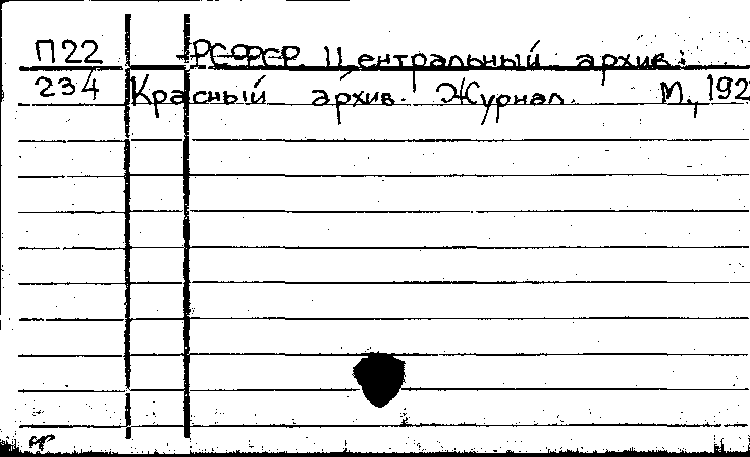 П22 РСФСР Центральный архив.
234 Красный архив. Журнал. М., 192